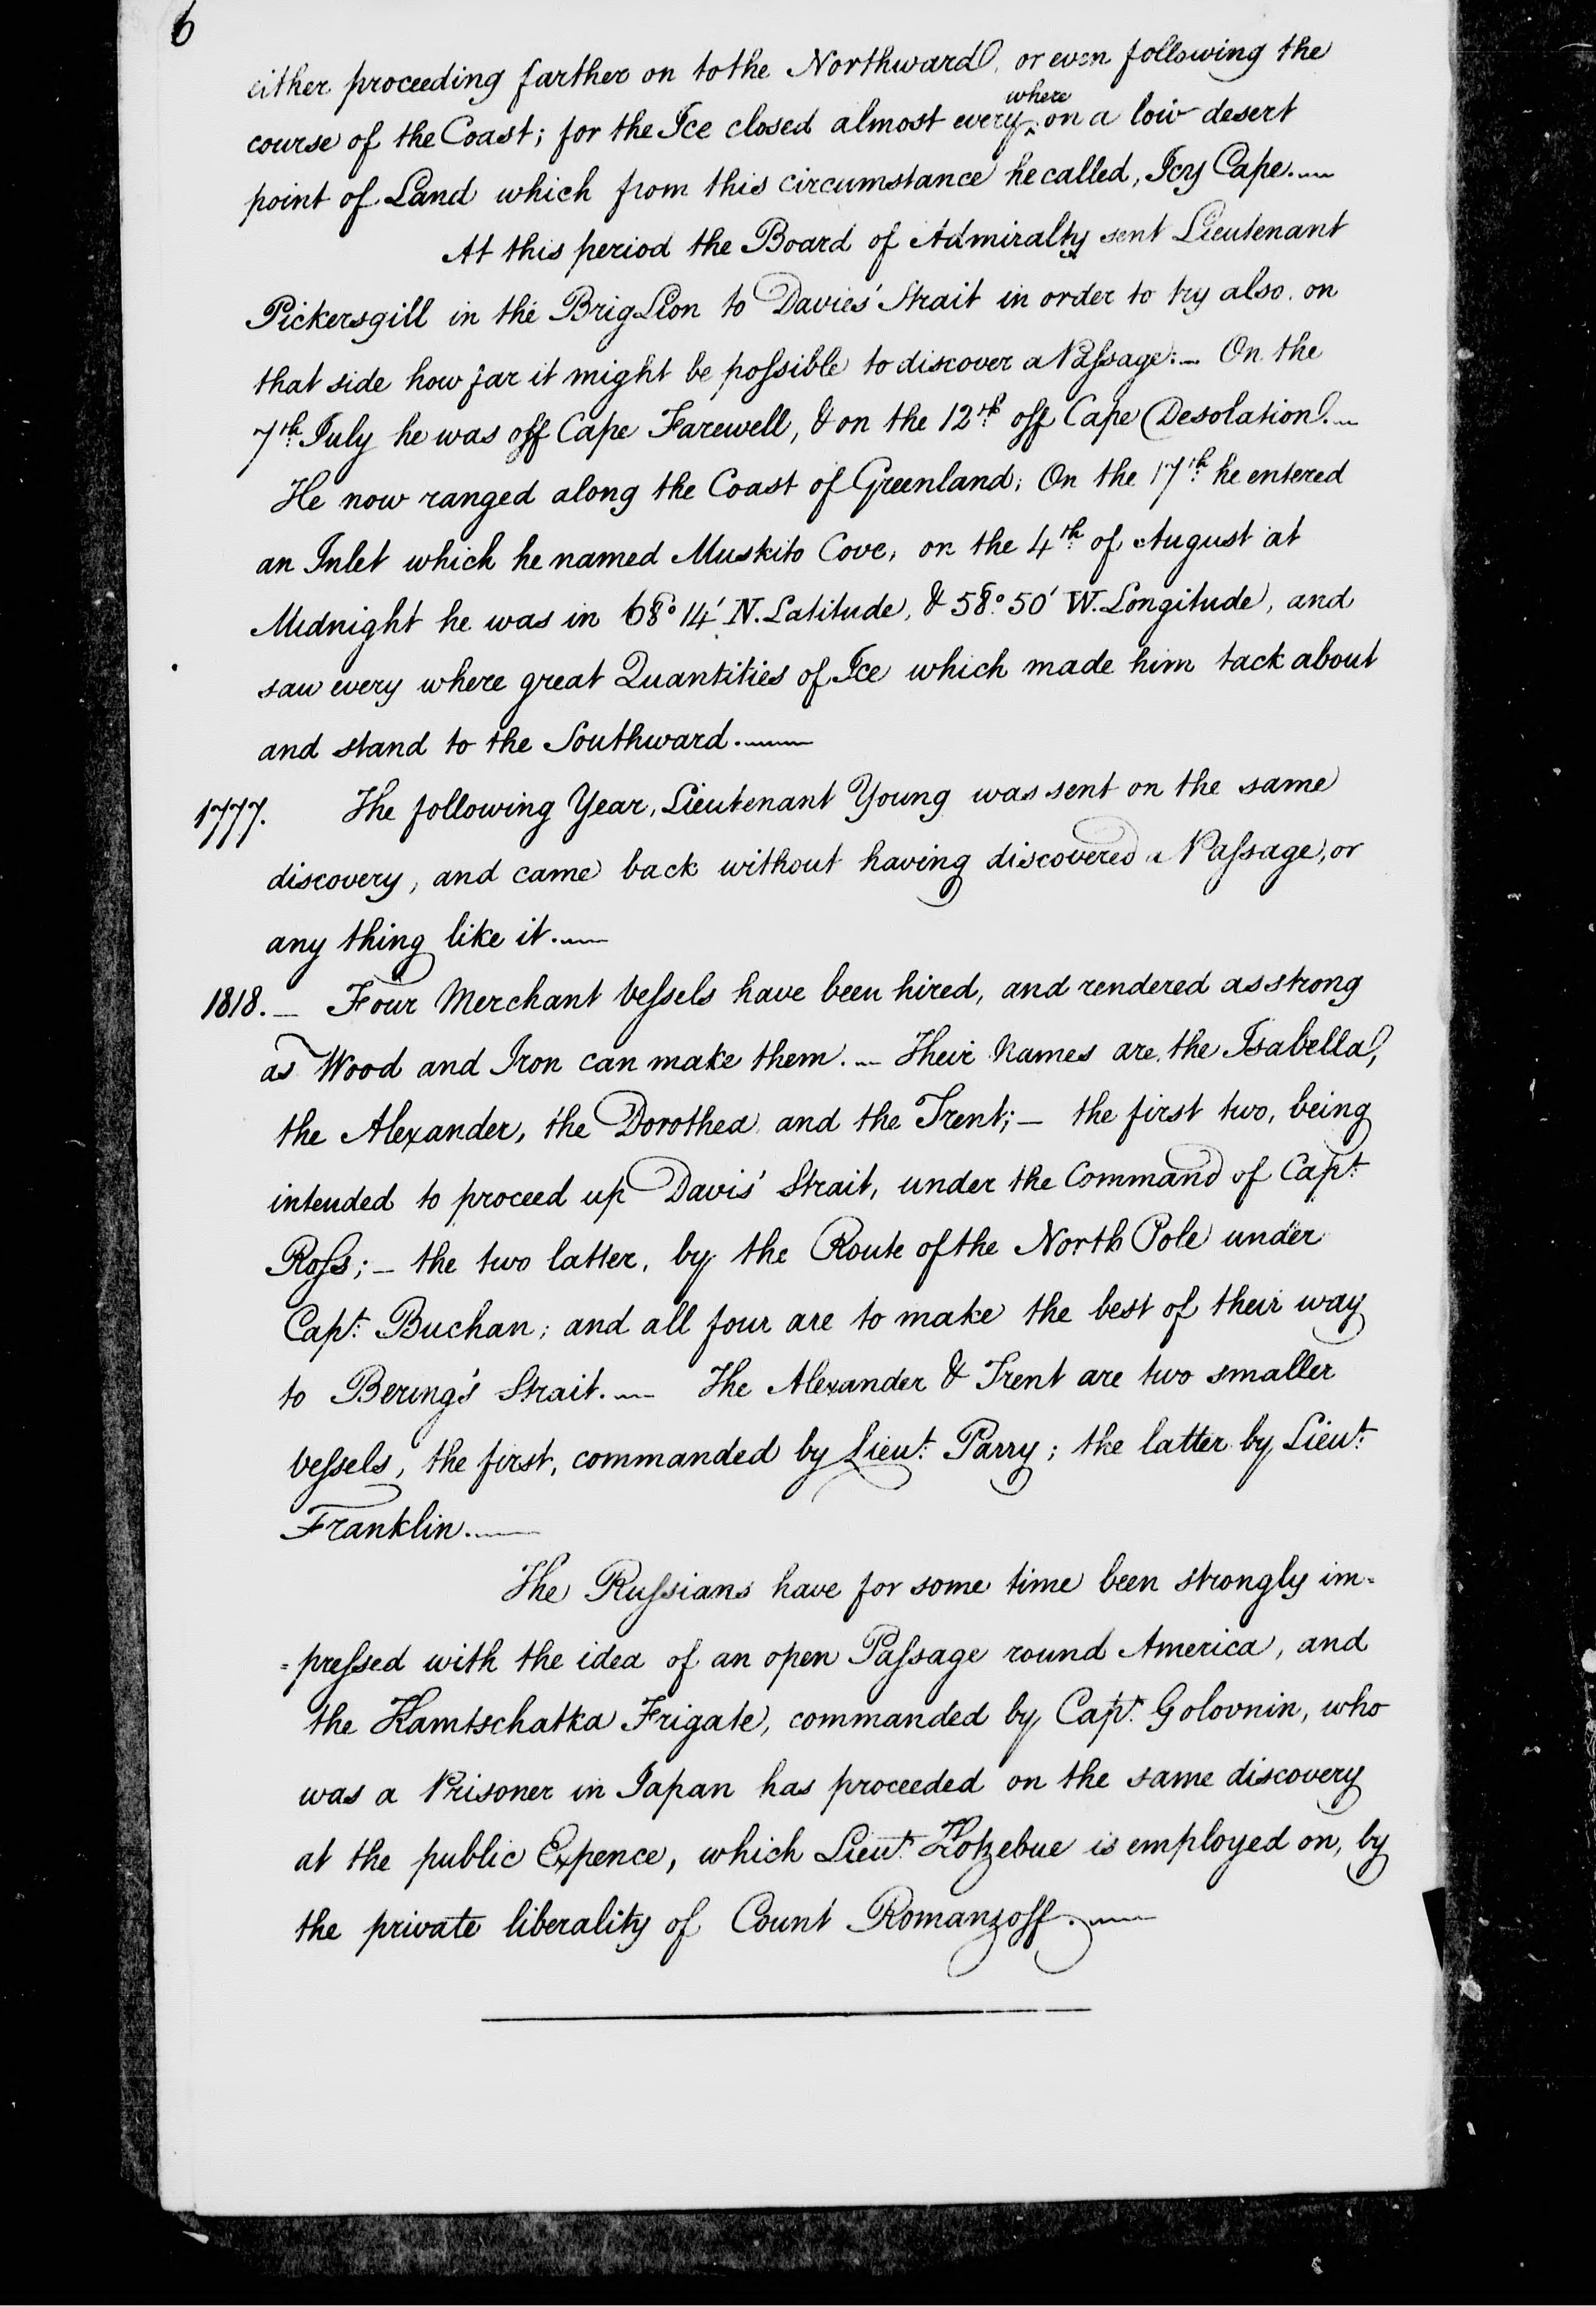 6
either proceeding farther on to the Northward, or even following the
course of the Coast; for the Ice closed almost every ^where on a low desert
point of Land which from this circumstance he called, Icy Cape.
At this period the Board of Admiralty sent Lieutenant
Pickersgill in the Brig Lion to Davies' Strait in order to try also on
that side how far it might be poſsible to discover a Paſsage:— On the
7th July he was off Cape Farewell, & on the 12th off Cape Desolation.—
He now ranged along the Coast of Greenland; On the 17th he entered
an Inlet which he named Muskito Cove, on the 4th of August at
Midnight he was in 68° 14' N. Latitude, & 58° 50' W. Longitude, and
saw every where great Quantities of Ice which made him tack about
and stand to the Southward.—
1777. The following Year, Lieutenant Young was sent on the same
discovery, and came back without having discovered a Paſsage, or
any thing like it.—
1818.— Four Merchant Veſsels have been hired, and rendered as strong
as Wood and Iron can make them.— Their Names are, the Isabella,
the Alexander, the Dorothea and the Trent;— the first two, being
intended to proceed up Davis' Strait, under the Command of Capt.
Roſs;— the two latter, by the Route of the North Pole under
Capt. Buchan; and all four are to make the best of their way
to Bering's Strait.— The Alexander & Trent are two smaller
veſsels, the first, commanded by Lieut. Parry; the latter by Lieut.
Franklin.—
The Ruſsians have for some time been strongly im=
=preſsed with the idea of an open Paſsage round America, and
the Kamtschatka Frigate, commanded by Capt. Golovnin, who
was a Prisoner in Japan has proceeded on the same discovery
at the public Expence, which Lieut. Kotzebue is employed on, by
the private liberality of Count Romanzoff.—